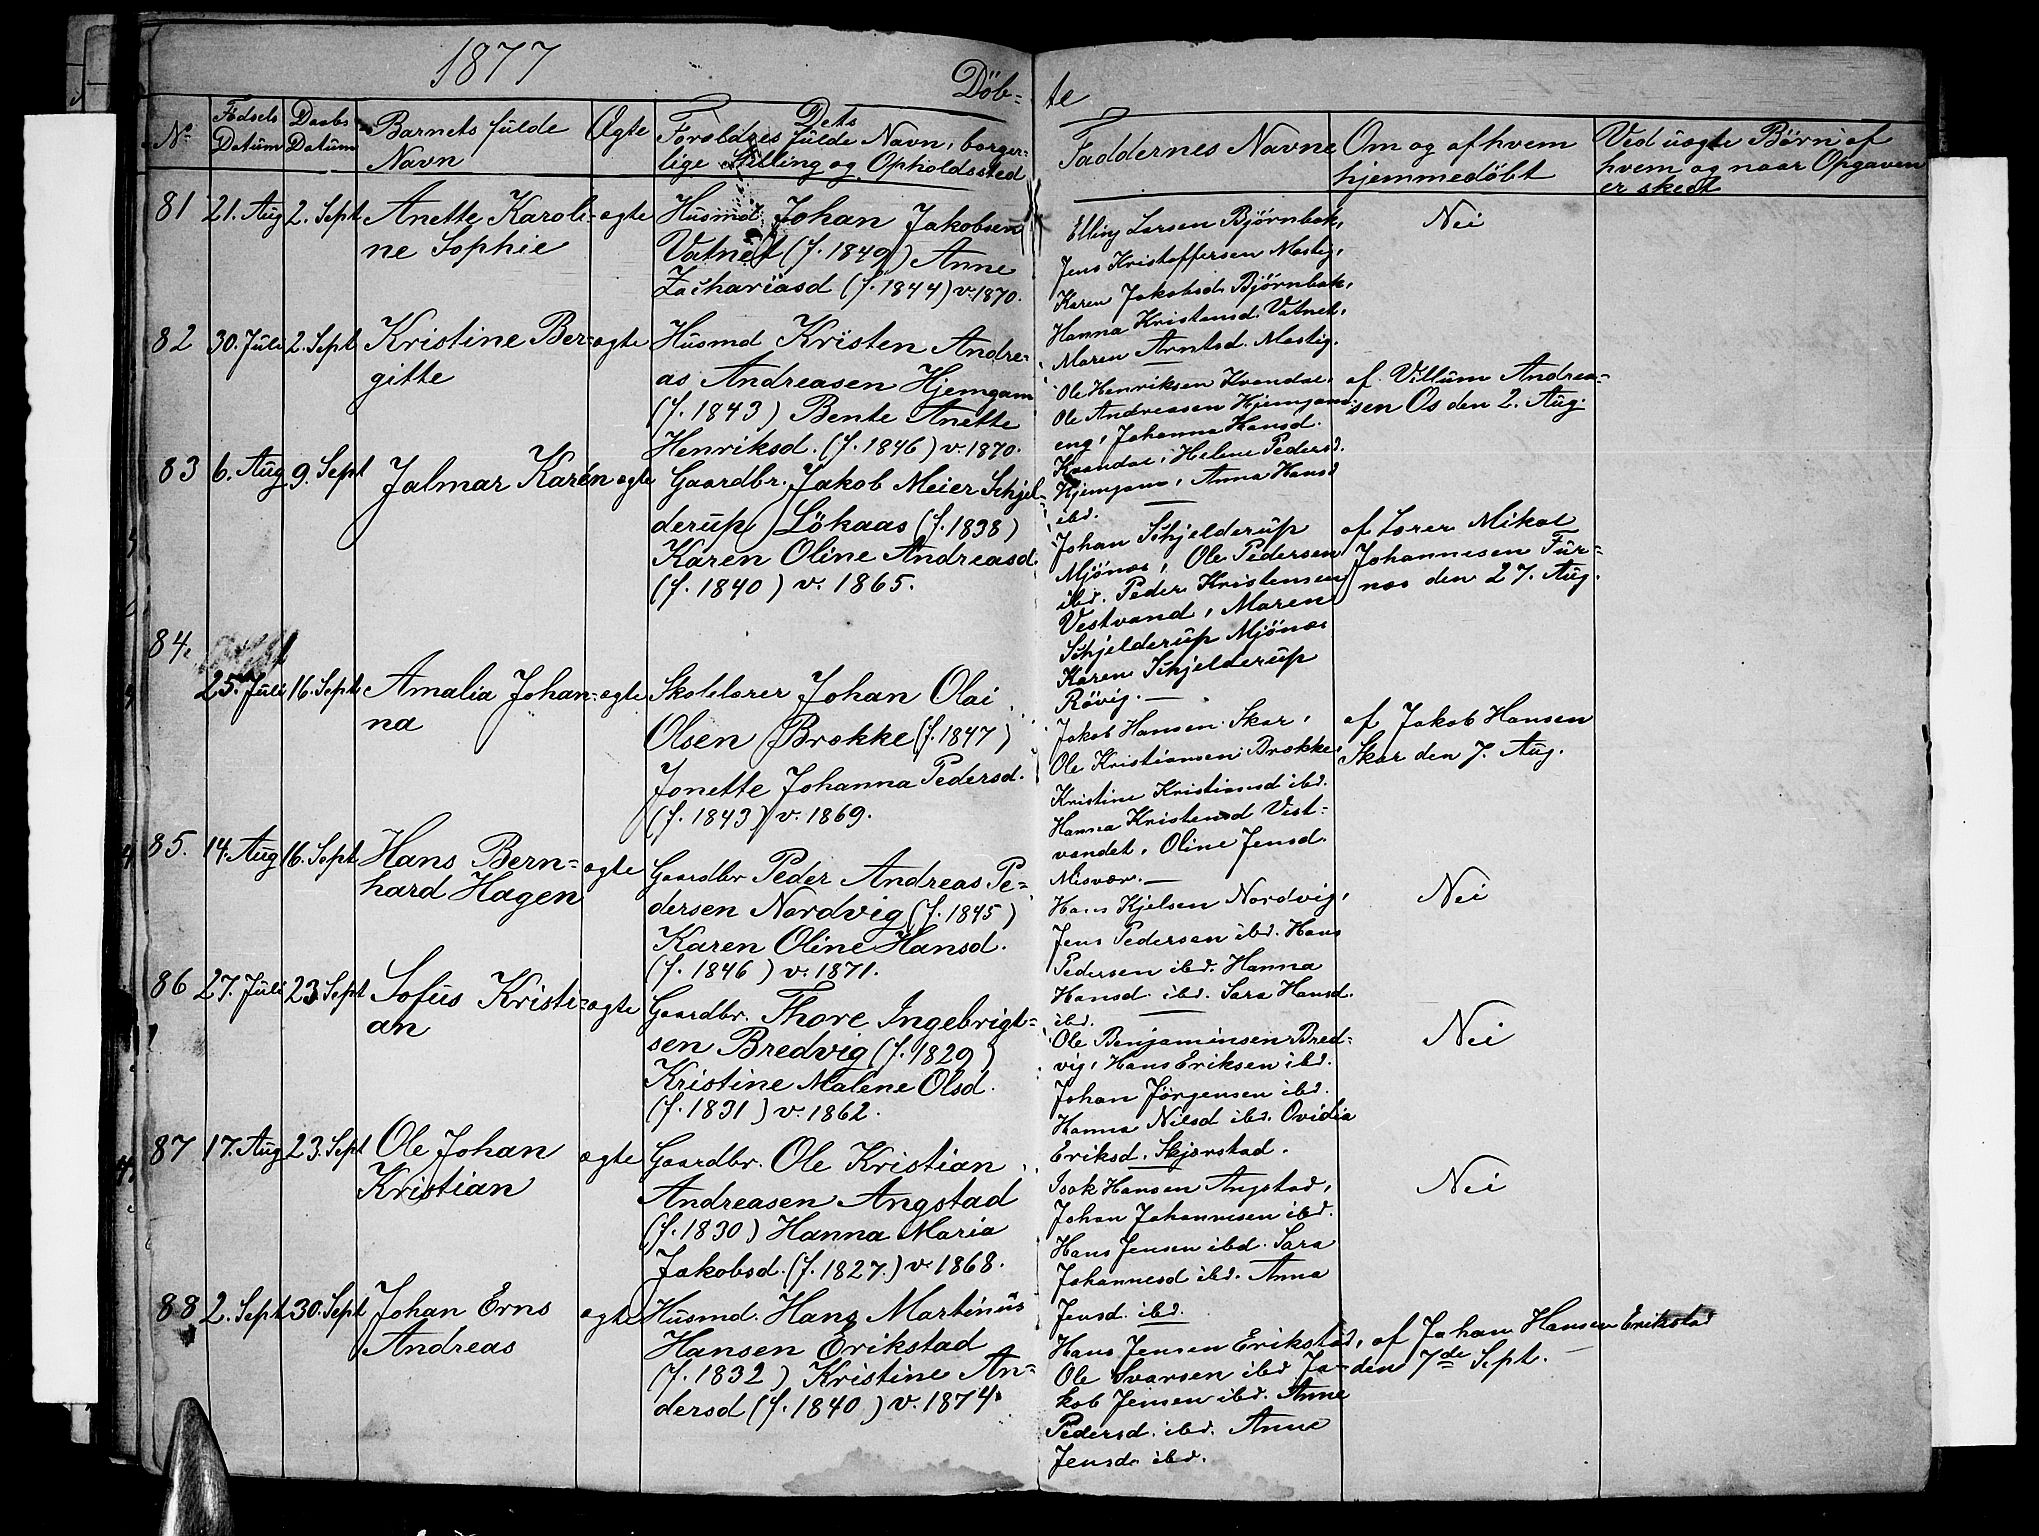 1877
Döb-
te
No
Fødsels
Datum
Daabs
Datum
Barnets fulde
Navn
Ægte
Dets
Forældres fulde Navn, borger-
lige Stilling og Opholdssted
Faddernes Navne
Om og af hvem
hjemmedöbt
Ved uægte Börn af
hvem og naar Opgaven
er skedt
81 21. Aug 2. Sept Anette Karoli- ægte
ne Sophie
Husmd. Johan Jakobsen
Vatnet (f. 1849) Anne
Zachariasd (f. 1844) v. 1870.
Elling Larsen Bjørnbak,
Jens Kristoffersen Mastig,
Karen Jakobsd. Bjørnbak,
Hanna Kristensd. Vatnet,
Maren Arntsd. Mastig.
Nei
82 30. Juli 2. Sept Kristine Ber- ægte
gitte
Husmd Kristen Andre-
as Andreasen Hjemgam
(f. 1843) Bente Anette
Henriksd. (f. 1846) v. 1870.
Ole Henriksen Kvandal,
Ole Andreasen Hjemgam-
eng, Johanna Hansd.
Kvandal, Helene Pedersd.
Hjemgam, Anna Hansd
ibd.
af Villum Andrea-
sen Os den 2. Aug.
83 6. Aug 9. Sept Jalmar Karén ægte
Gaardbr. Jakob Meier Schjel-
derup Lökaas (f. 1838)
Karen Oline Andreasd.
(f. 1840) v. 1865.
Johan Schjelderup
Mjönæs, Ole Pedersen
ibd. Peder Kristensen
Vestvand, Maren
Schjelderup Mjönæs
Karen Schjelderup
Rövig.
af Lærer Mikal
Johannesen Fur-
næs den 27. Aug.
84.
25. Juli 16. Sept Amalia Johan- ægte
na
Skolelærer Johan Olai
Olsen Brække (f. 1847)
Jonette Johanna Pedersd.
(f. 1843) v. 1869.
Jakob Hansen Skar,
Ole Kristiansen Brække,
Kristine Kristiansd ibd.
Hanna Kristensd Vest-
vandet, Oline Jensd.
Misvær.
af Jakob Hansen
Skar den 7. Aug.
85. 14. Aug 16. Sept Hans Bern- ægte
hard Hagen
Gaardbr Peder Andreas Pe-
dersen Nordvig (f. 1845)
Karen Oline Hansd.
(f. 1846) v. 1871.
Hans Kjelsen Nordvig,
Jens Pedersen ibd. Hans
Pedersen ibd. Hanna
Hansd. ibd. Sara Hansd.
ibd.
Nei
86 27. Juli 23 Sept Sofus Kristi- ægte
an
Gaardbr. Thore Ingebrigt-
sen Bredvig (f. 1829)
Kristine Malene Olsd.
(f. 1831) v. 1862.
Ole Benjaminsen Bred-
vig, Hans Eriksen ibd.
Johan Jørgensen ibd.
Hanna Nilsd ibd. Ovidia
Eriksd. Skjærstad.
Nei
87 17. Aug 23. Sept Ole Johan ægte
Kristian
Gaardbr. Ole Kristian
Andreasen Angstad
(f. 1830) Hanna Maria
Jakobsd. (f. 1827.) v. 1868.
Isak Hansen Angstad,
Johan Johannesen ibd.
Hans Jensen ibd. Sara
Johannesd ibd. Anna
Jensd. ibd.
Nei
88 2. Sept 30. Sept Johan Erns ægte
Andreas
Husmd. Hans Martinus
Hansen Erikstad
(f. 1832) Kristine An-
dersd (f. 1840) v. 1874.
Hans Jensen Erikstad,
Ole Ivarsen ibd Ja-
kob Jensen ibd. Anne
Pedersd. ibd. Anne
Jensd. ibd.
af Johan Hansen Erikstad
den 7de Sept.